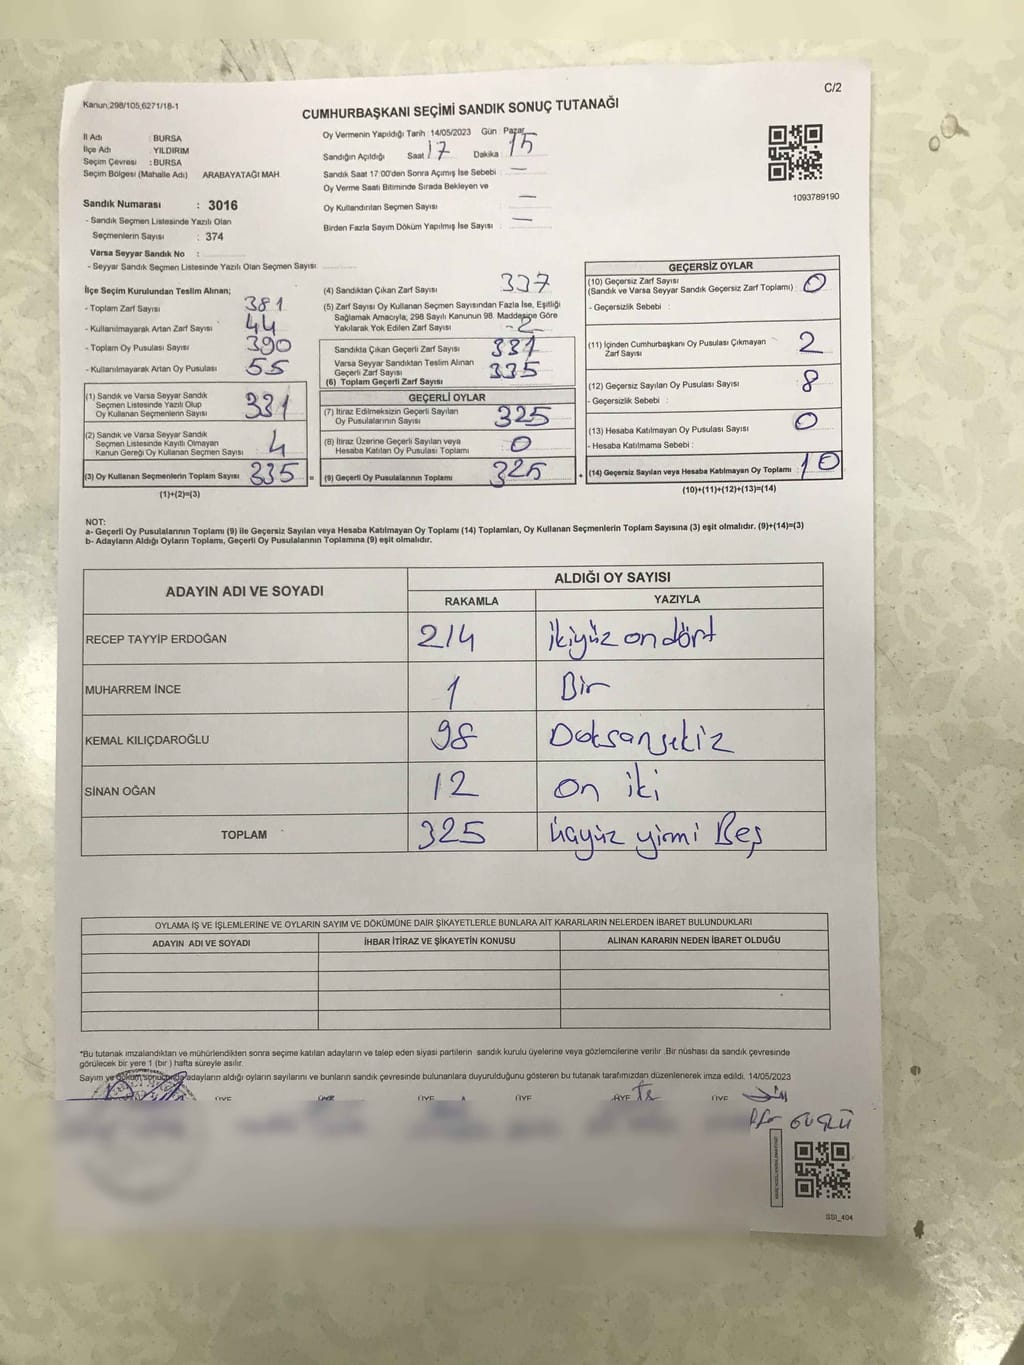 C/2
Kanun,298/105,6271/18-1
CUMHURBAŞKANI SEÇİMİ SANDIK SONUÇ TUTANAĞI
İl Adı : BURSA
İlçe Adı : YILDIRIM
Seçim Çevresi : BURSA
Seçim Bölgesi (Mahalle Adı) ARABAYATAĞI MAH.
Oy Vermenin Yapıldığı Tarih : 14/05/2023 Gün : Pazar
Sandığın Açıldığı Saat 17 Dakika 15
Sandık Saat 17:00'den Sonra Açımış İse Sebebi : —
Oy Verme Saati Bitiminde Sırada Bekleyen ve
Oy Kullandırılan Seçmen Sayısı : —
Birden Fazla Sayım Döküm Yapılmış İse Sayısı : —
1093789190
Sandık Numarası : 3016
- Sandık Seçmen Listesinde Yazılı Olan
Seçmenlerin Sayısı : 374
Varsa Seyyar Sandık No :
- Seyyar Sandık Seçmen Listesinde Yazılı Olan Seçmen Sayısı:
İlçe Seçim Kurulundan Teslim Alınan;
- Toplam Zarf Sayısı 381
- Kullanılmayarak Artan Zarf Sayısı 44
- Toplam Oy Pusulası Sayısı 390
- Kullanılmayarak Artan Oy Pusulası 55
(1) Sandık ve Varsa Seyyar Sandık
Seçmen Listesinde Yazılı Olup
Oy Kullanan Seçmenlerin Sayısı 331
(2) Sandık ve Varsa Seyyar Sandık
Seçmen Listesinde Kayıtlı Olmayan
Kanun Gereği Oy Kullanan Seçmen Sayısı 4
(3) Oy Kullanan Seçmenlerin Toplam Sayısı 335 =
(1)+(2)=(3)
(4) Sandıktan Çıkan Zarf Sayısı 337
(5) Zarf Sayısı Oy Kullanan Seçmen Sayısından Fazla İse, Eşitliği
Sağlamak Amacıyla, 298 Sayılı Kanunun 98. Maddesine Göre
Yakılarak Yok Edilen Zarf Sayısı -2-
Sandıkta Çıkan Geçerli Zarf Sayısı 331
Varsa Seyyar Sandıktan Teslim Alınan
Geçerli Zarf Sayısı
(6) Toplam Geçerli Zarf Sayısı 335
GEÇERLİ OYLAR
(7) İtiraz Edilmeksizin Geçerli Sayılan
Oy Pusulasının Sayısı 325
(8) İtiraz Üzerine Geçerli Sayılan veya
Hesaba Katılan Oy Pusulası Toplamı 0
(9) Geçerli Oy Pusulalarının Toplamı 325 +
GEÇERSİZ OYLAR
(10) Geçersiz Zarf Sayısı
(Sandık ve Varsa Seyyar Sandık Geçersiz Zarf Toplamı) : 0
- Geçersizlik Sebebi :
(11) İçinden Cumhurbaşkanı Oy Pusulası Çıkmayan
Zarf Sayısı 2
(12) Geçersiz Sayılan Oy Pusulası Sayısı 8
- Geçersizlik Sebebi :
(13) Hesaba Katılmayan Oy Pusulası Sayısı 0
- Hesaba Katılmama Sebebi :
(14) Geçersiz Sayılan veya Hesaba Katılmayan Oy Toplamı : 10
(10)+(11)+(12)+(13)=(14)
NOT:
a- Geçerli Oy Pusulalarının Toplamı (9) ile Geçersiz Sayılan veya Hesaba Katılmayan Oy Toplamı (14) Toplamları, Oy Kullanan Seçmenlerin Toplam Sayısına (3) eşit olmalıdır. (9)+(14)=(3)
b- Adayların Aldığı Oyların Toplamı, Geçerli Oy Pusulalarının Toplamına (9) eşit olmalıdır.
ADAYIN ADI VE SOYADI ALDIĞI OY SAYISI
RAKAMLA YAZIYLA
RECEP TAYYİP ERDOĞAN 214 İkiyüz on dört
MUHARREM İNCE 1 Bir
KEMAL KILIÇDAROĞLU 98 Doksansekiz
SİNAN OĞAN 12 on iki
TOPLAM 325 üçyüz yirmi Beş
OYLAMA İŞ VE İŞLEMLERİNE VE OYLARIN SAYIM VE DÖKÜMÜNE DAİR ŞİKAYETLERLE BUNLARA AİT KARARLARIN NELERDEN İBARET BULUNDUKLARI
ADAYIN ADI VE SOYADI İHBAR İTİRAZ VE ŞİKAYETİN KONUSU ALINAN KARARIN NEDEN İBARET OLDUĞU
*Bu tutanak imzalandıktan ve mühürlendikten sonra seçime katılan adayların ve talep eden siyasi partilerin sandık kurulu üyelerine veya gözlemcilerine verilir. Bir nüshası da sandık çevresinde
görülecek bir yere 1 (bir) hafta süreyle asılır.
Sayım ve döküm sonucunda adayların aldığı oyların sayılarını ve bunların sandık çevresinde bulunanlara duyurulduğunu gösteren bu tutanak tarafımızdan düzenlenerek imza edildi. 14/05/2023
ÜYE ÜYE ÜYE ÜYE ÜYE
SSI_404